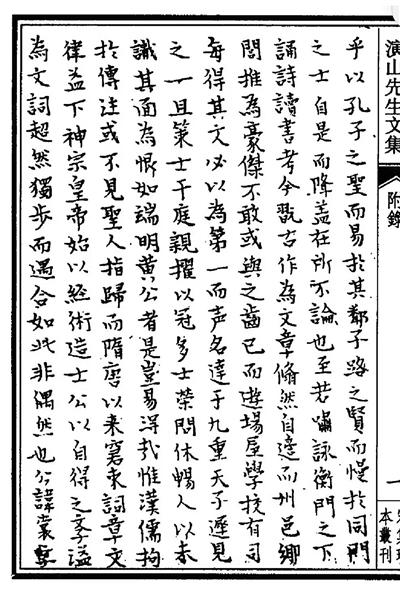 演山先生文集
附錄
一
本叢刊
乎以孔子之聖而易於其鄰子路之賢而慢於同門
之士自是而降蓋在所不論也至若嘯詠衡門之下
誦詩讀書考今翫古作為文章翛然自適而州邑鄉
閭推為豪傑不敢或與之齒已而遊場屋學校有司
每得其文必以為第一而声名達于九重天子遲見
之一旦策士于庭親擢以冠多士榮問休暢人人以未
識其面為恨如端明黄公者是豈易得哉惟漢儒拘
於傳注或不見聖人指歸而隋唐以來窘束詞章文
律益下神宗皇帝始以經術造士公以自得之學溢
為文詞超然獨步而遇合如此非偶然也公諱裳